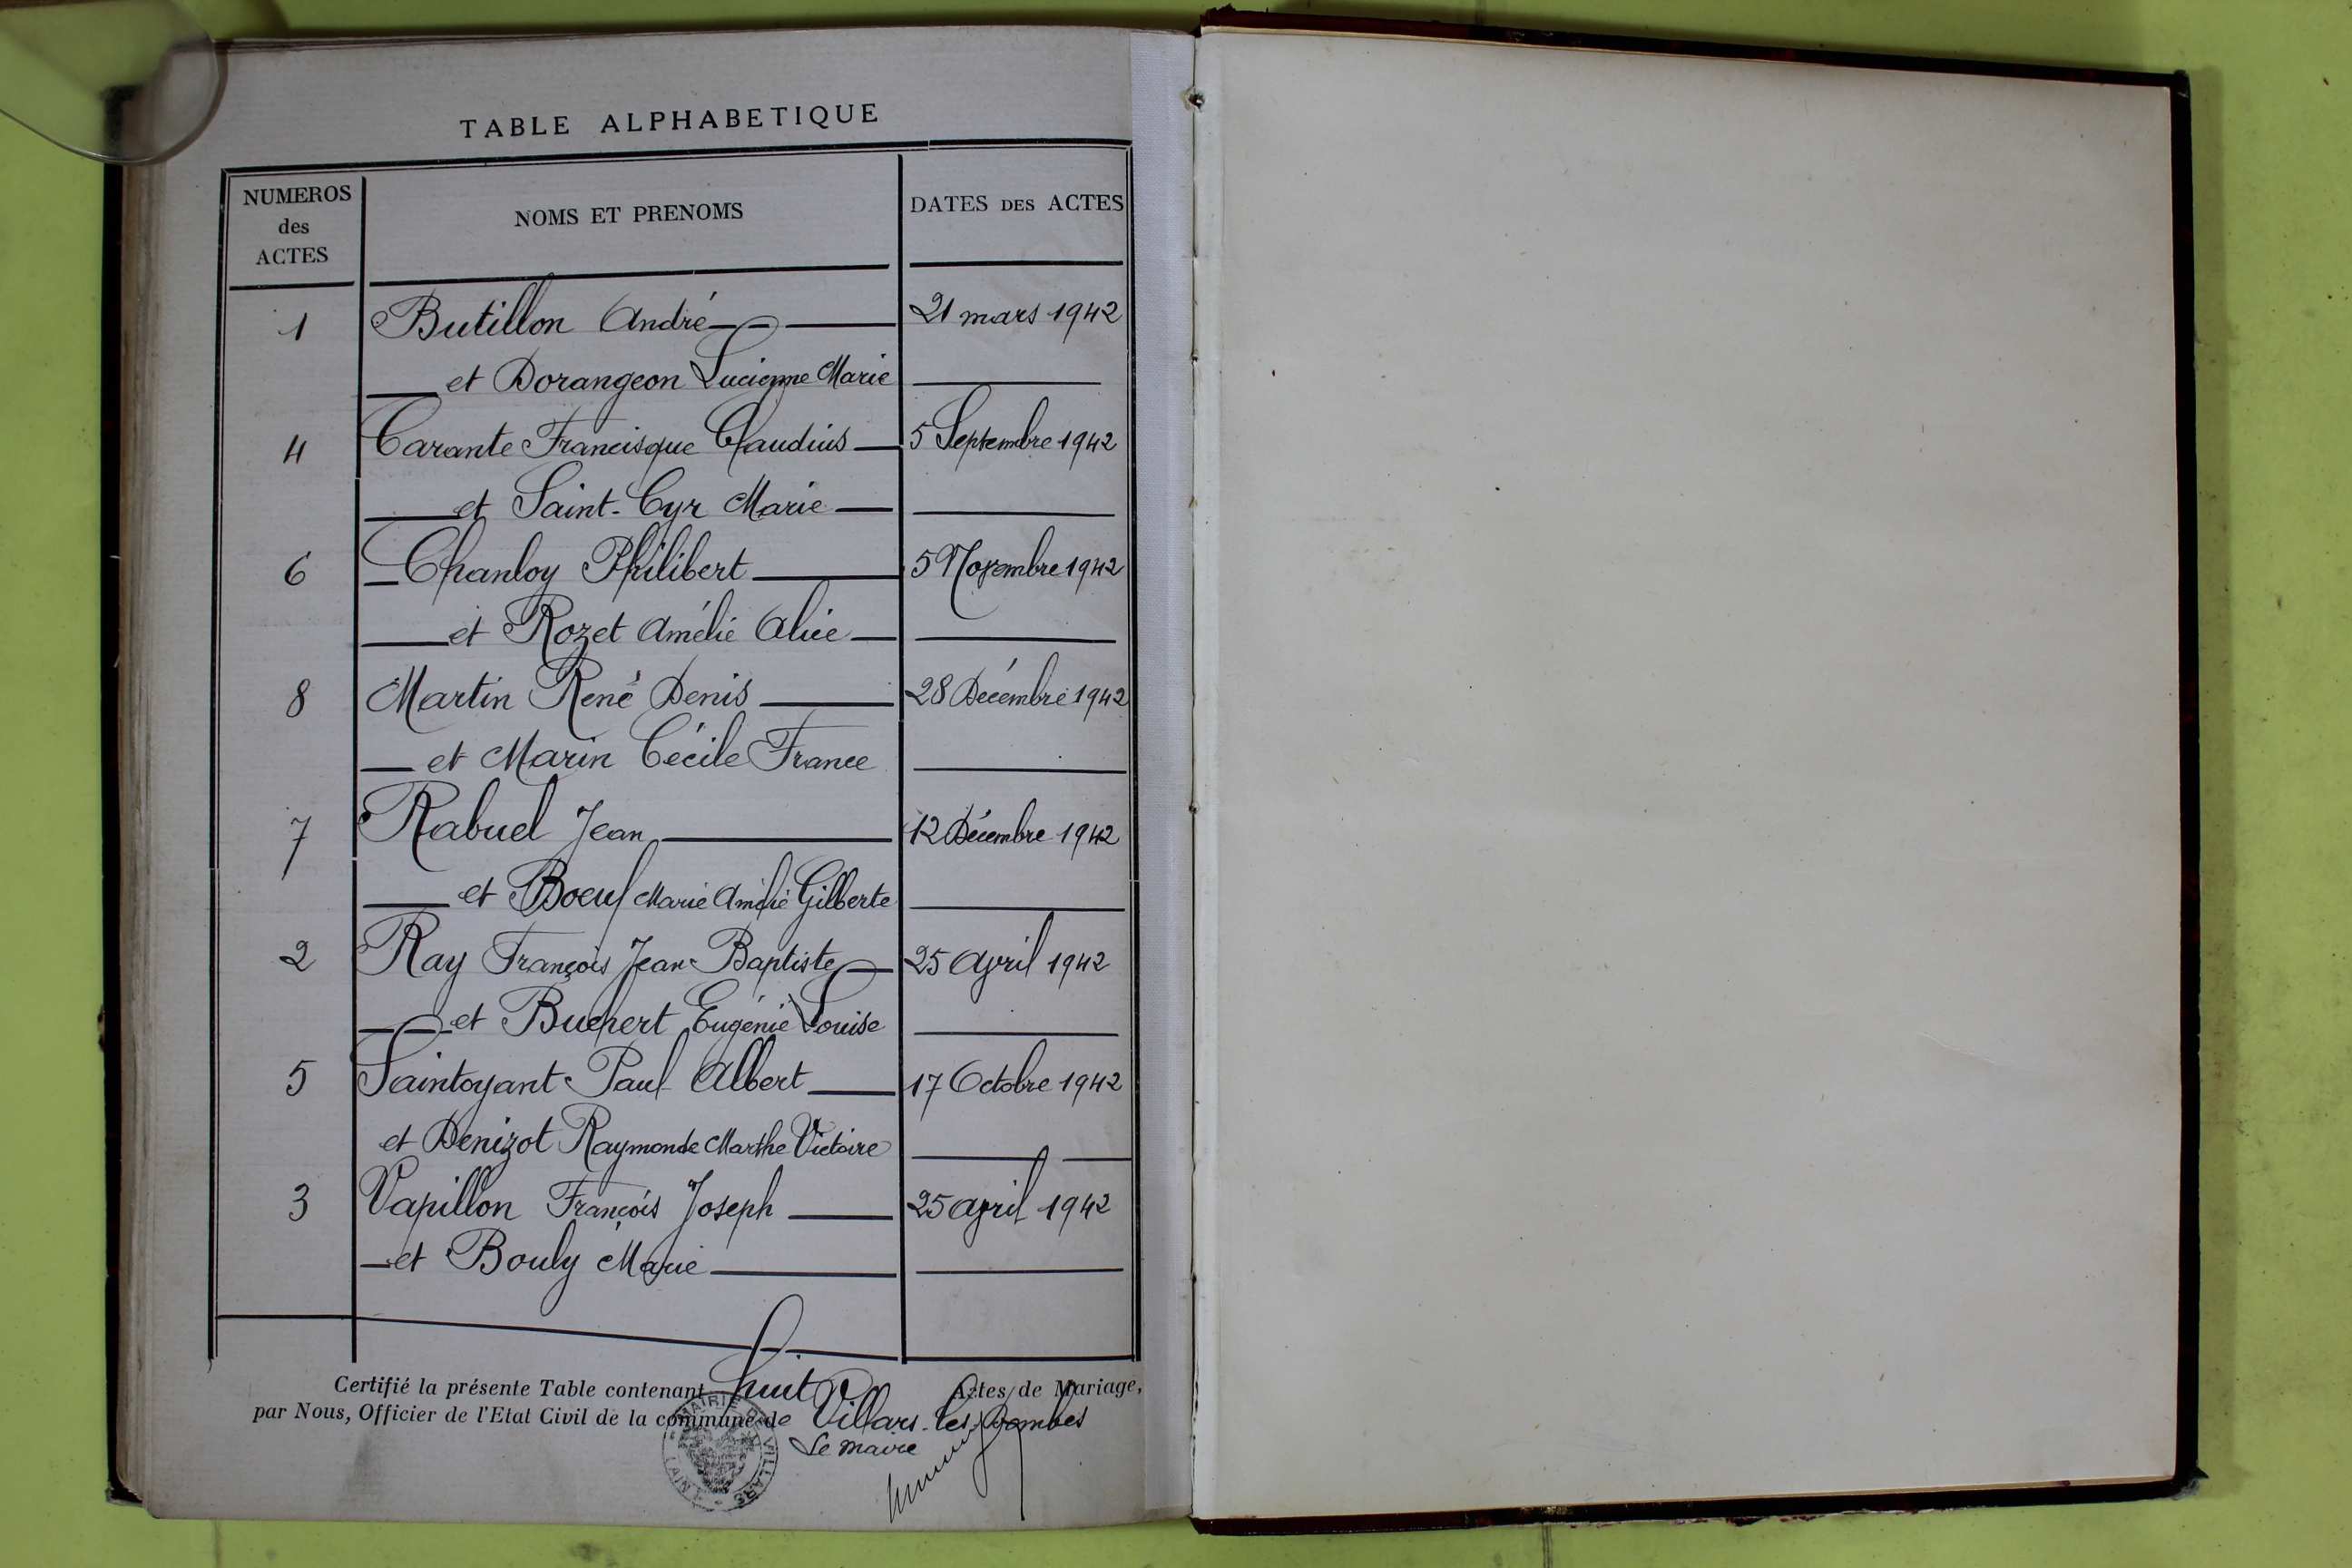 TABLE ALPHABETIQUE
NUMEROS des ACTES
NOMS ET PRENOMS
DATES DES ACTES
1 Butillon André 21 mars 1942
et Dorangeon Lucienne Marie
4 Carante Francisque Claudius 5 Septembre 1942
et Saint-Cyr Marie
6 Chanloy Philibert 5 Novembre 1942
et Rozet Amélie Alice
8 Martin René Denis 28 Décembre 1942
et Marin Cécile France
7 Rabuel Jean 12 Décembre 1942
et Boeuf Marie Amélie Gilberte
2 Ray François Jean-Baptiste 25 avril 1942
et Buchert Eugénie Louise
5 Saintoyant Paul Albert 17 Octobre 1942
et Denizot Raymonde Marthe Victoire
3 Vapillon François Joseph 25 avril 1942
et Bouly Marie
Certifié la présente Table contenant huit Actes de Mariage,
par Nous, Officier de l'Etat Civil de la commune de Villars-les-Dombes
Le Maire
MAIRIE DE VILLARS (AIN)